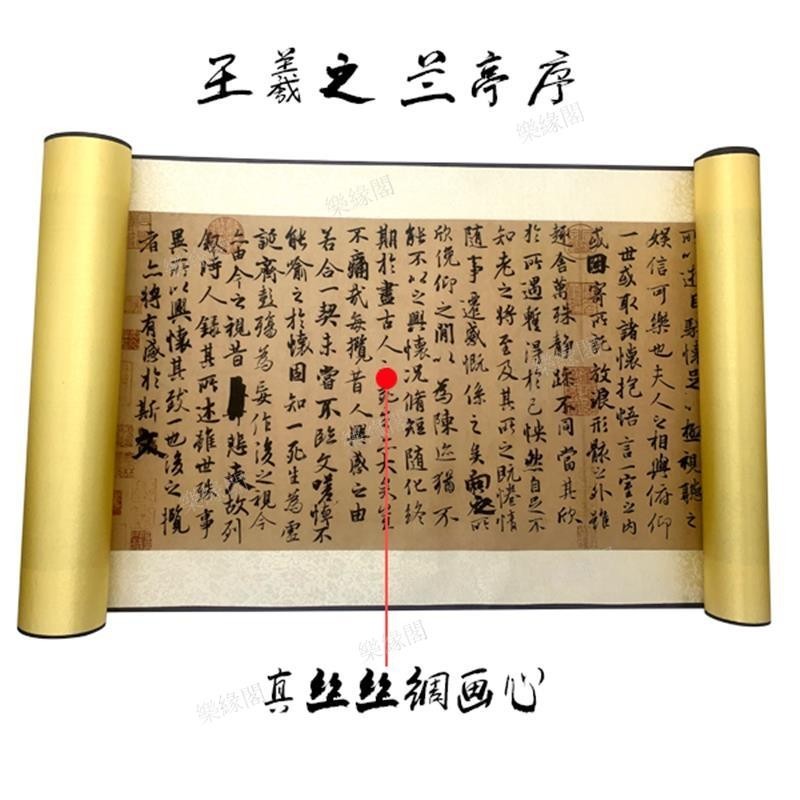 王羲之 兰亭序
所以遊目騁懷足以極視聽之
娛信可樂也夫人之相與俯仰
一世或取諸懷抱悟言一室之內
或因寄所託放浪形骸之外雖
趣舍萬殊靜躁不同當其欣
於所遇蹔得於己怏然自足不
知老之將至及其所之既惓情
隨事遷感慨係之矣向之所
欣俛仰之閒以為陳迹猶不
能不以之興懷況脩短隨化終
期於盡古人死生亦大矣豈
不痛哉每攬昔人興感之由
若合一契未嘗不臨文嗟悼不
能喻之於懷固知一死生為虛
誕齊彭殤為妄作後之視今
亦由今之視昔悲夫故列
敘時人錄其所述雖世殊事
異所以興懷其致一也後之攬
者亦將有感於斯文
真丝丝綢画心
樂緣閣
樂緣閣
樂緣閣
樂緣閣
樂緣閣
樂緣閣
樂緣閣
樂緣閣